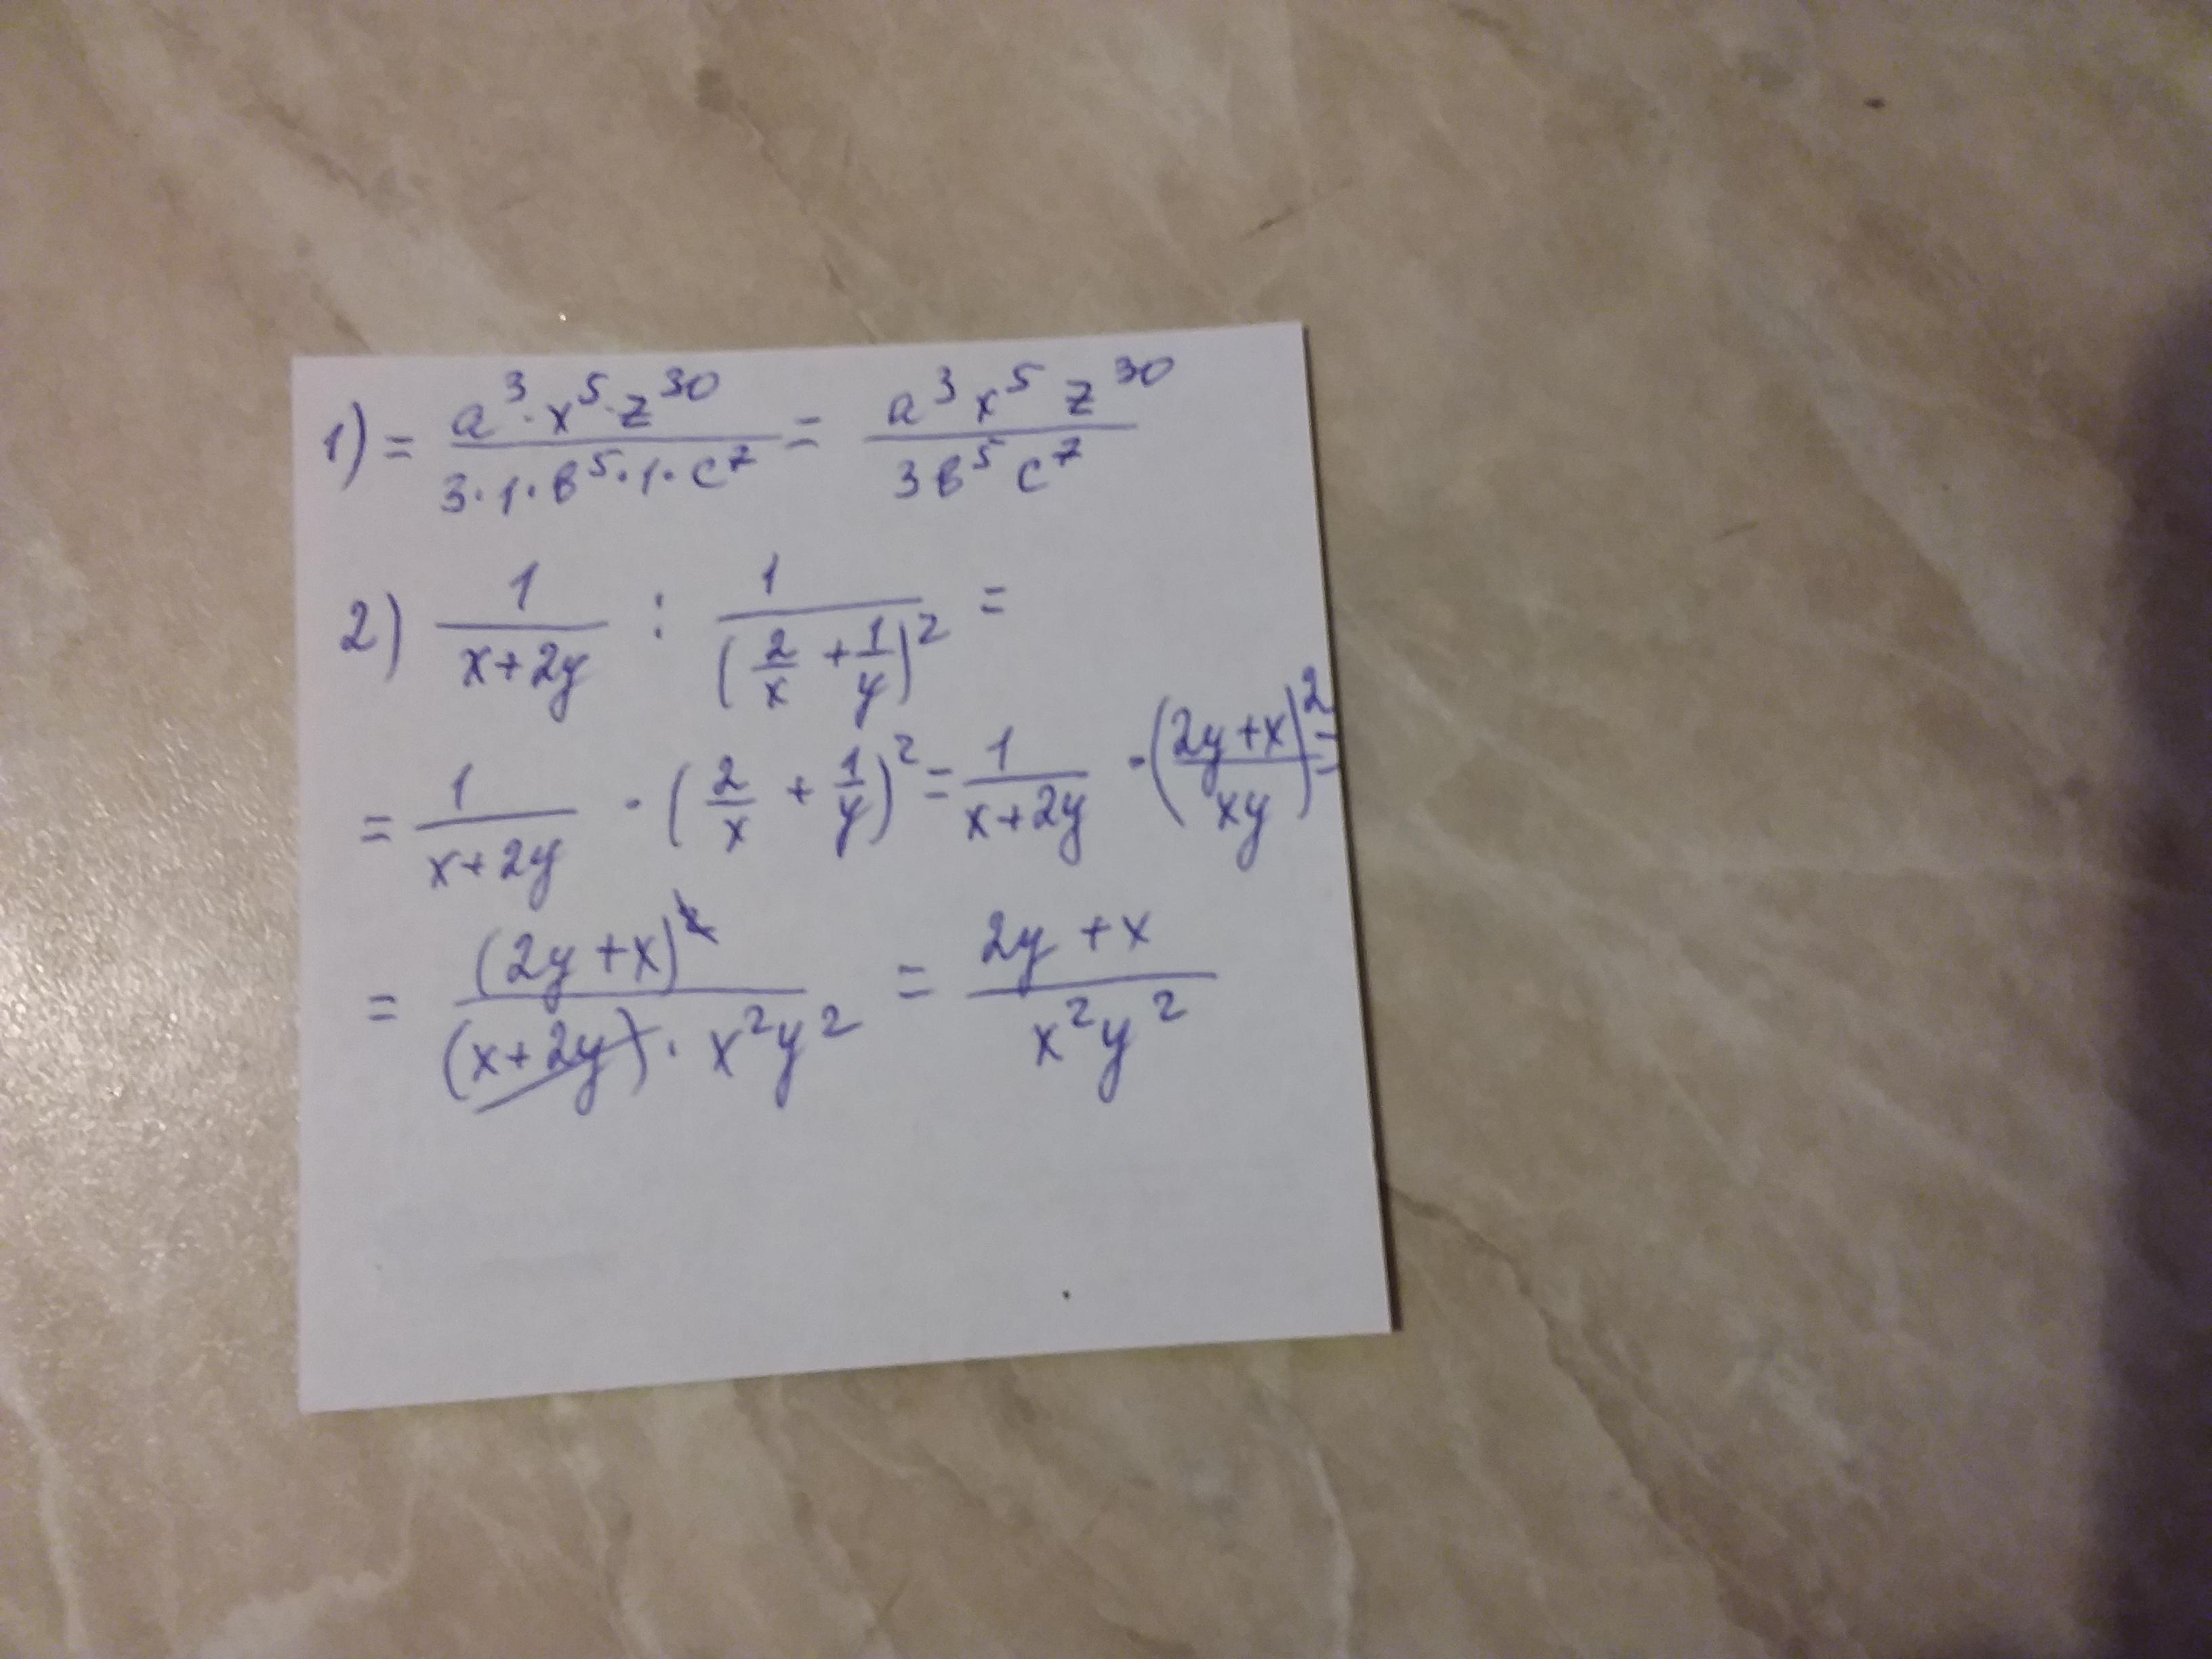 1) = a³·x⁵·z³⁰ / 3·1·в⁵·1·c⁷ = a³x⁵z³⁰ / 3в⁵c⁷
2) 1 / x+2y : 1 / (2/x + 1/y)² =
= 1 / x+2y · (2/x + 1/y)² = 1 / x+2y · (2y+x / xy)² =
= (2y+x)² / (x+2y)·x²y² = 2y+x / x²y²